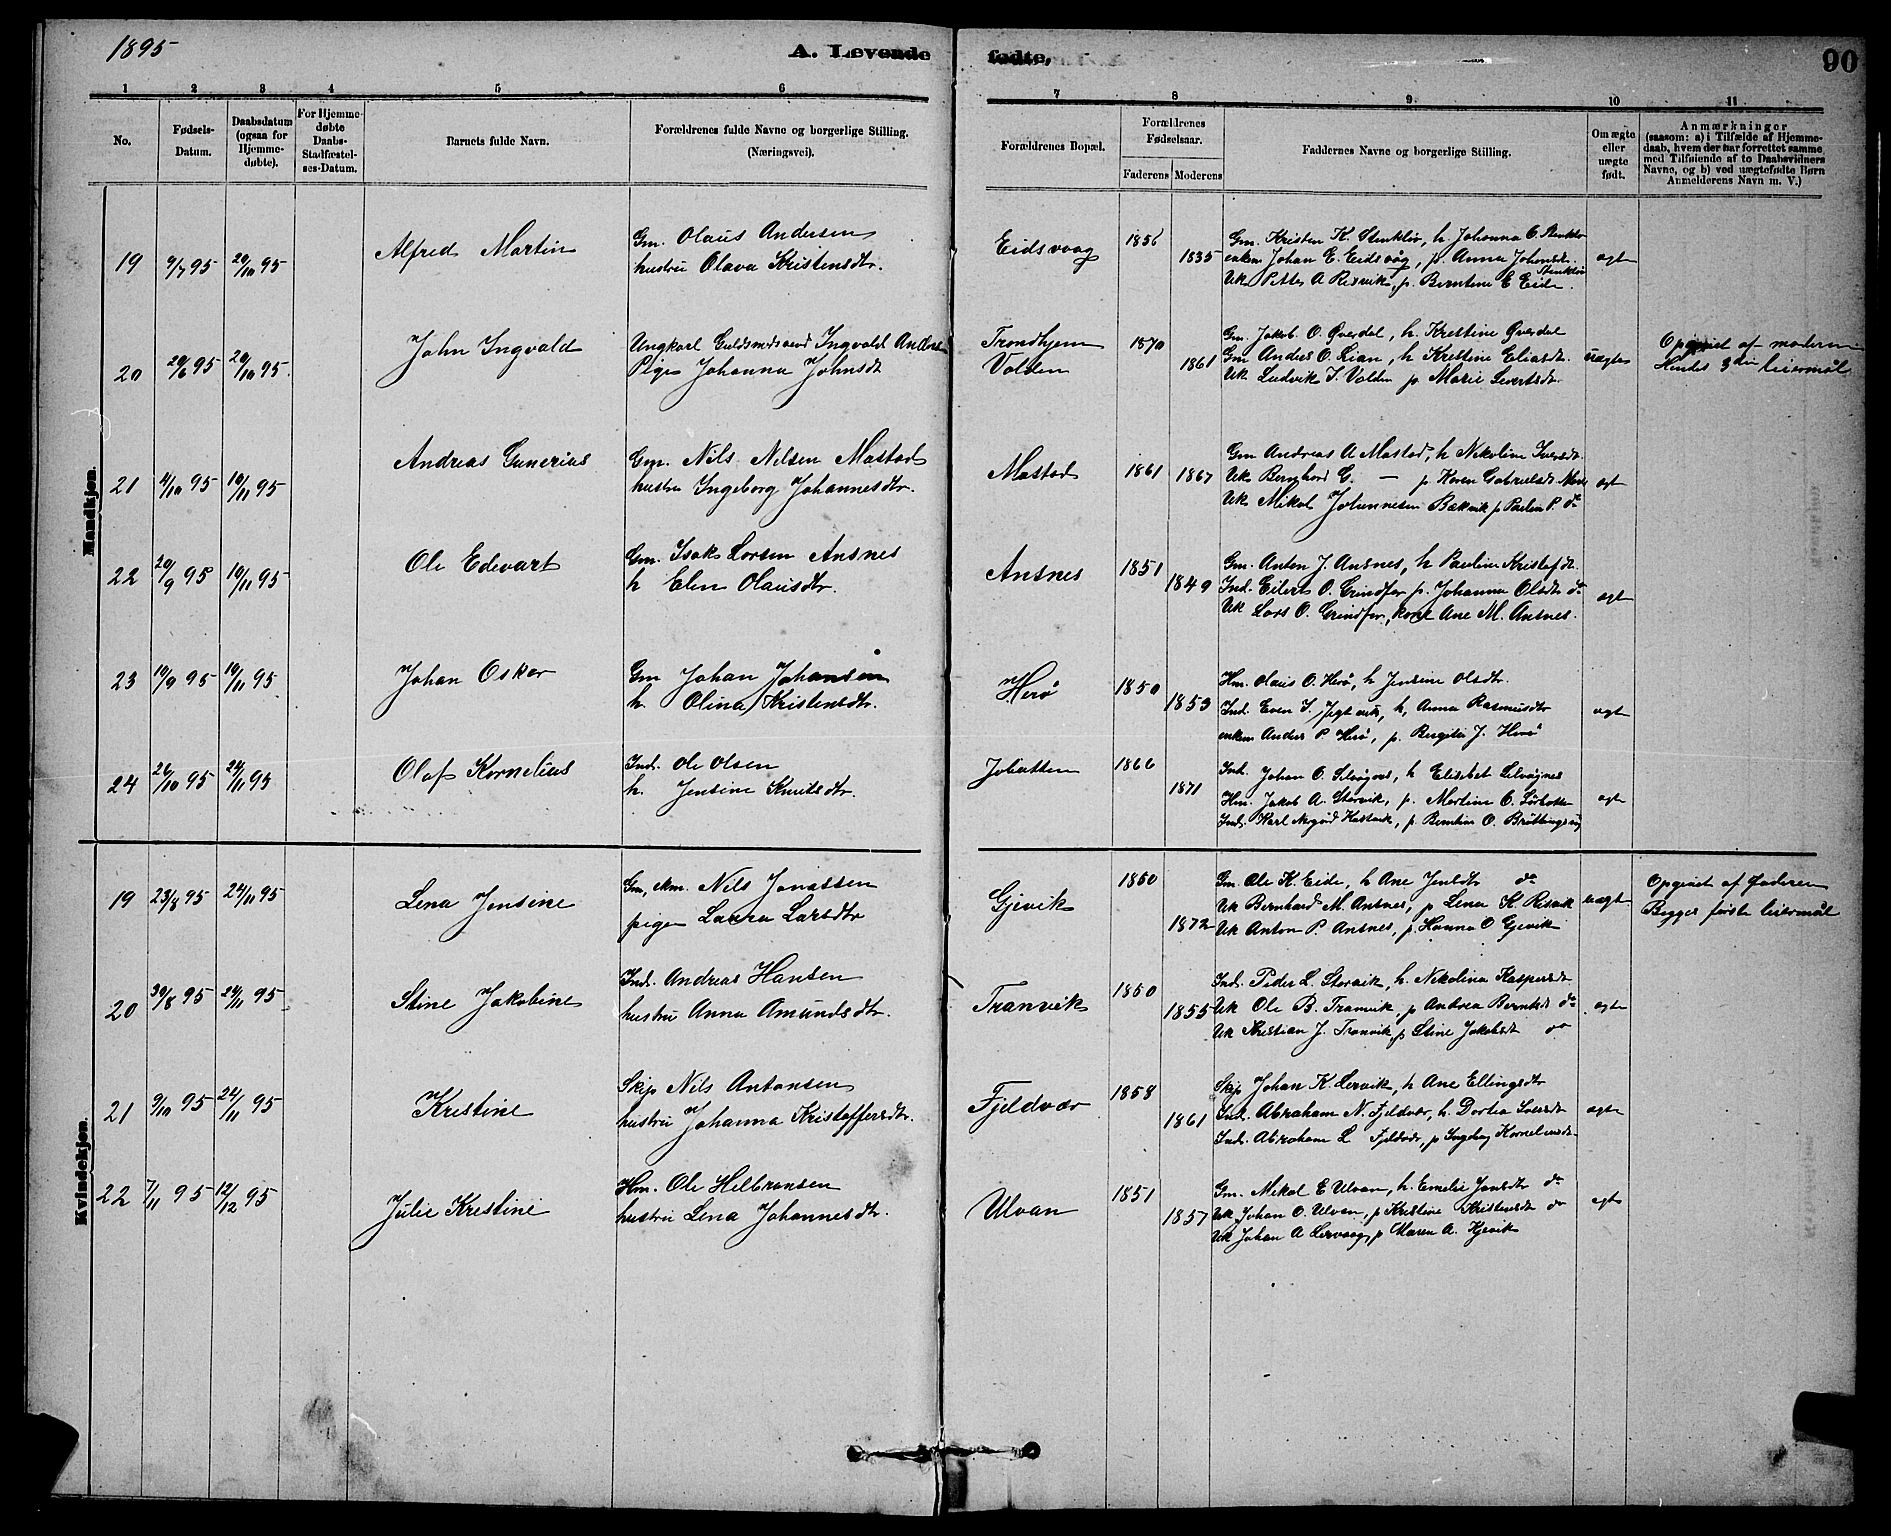 1895
A. Levende
fødte,
90
1 2 3 4 5 6 7 8 9 10 11
No.
Fødsels-Datum.
Daabsdatum (ogsaa for Hjemmedøbte).
For Hjemmedøbte Daabs-Stadfæstelses-Datum.
Barnets fulde Navn.
Forældrenes fulde Navne og borgerlige Stilling. (Næringsvei).
Forældrenes Bopæl.
Forældrenes Fødselsaar.
Faderens Moderens
Faddernes Navne og borgerlige Stilling.
Om ægte eller uægte født.
Anmærkninger (saasom: a) i Tilfælde af Hjemmedaab, hvem der har forrettet samme, med Tilføiende af to Daabsvidners Navne, og b) ved uægtefødte Børn Anmelderens Navn m. V.)
Mandkjøn.
19 9/7 95 20/10 95 Alfred Martin
Gm. Olaus Andersen
hustru Olava Kristensdtr.
Eidsvaag 1856 1835
Gm. Kristen K. Stenklør, h Johanna O. Stenklør
enkem Johan E. Eidsvåg, p. Anna Johansdt. Stenklør
Uk Petter A Risvik, p. Berntine E Eide.
ægte
20 29/6 95 20/10 95 John Ingvald
Ungkarl Guldsmedsvend Ingvald
Pige Johanna Johnsdt
Trondhjem
Volden
1870 1861
Gm. Jakob O. Øverdal, h. Kristine Øverdal
Gm Anders O. Lian, h Kristine Eliasdt.
Uk Ludvik I. Volden p. Marie Sivertsdt.
uægte
Opgivet af moderen
Hendes 3die leiermål
21 4/10 95 10/11 95 Andreas Gunerius
Gm. Nils Nilsen Mastad
hustru Ingeborg Johannesdtr.
Mastad 1861 1867
Gm Andreas A Mastad, h Nikoline Iversdt.
Uk Bernhard G. — p Karen Gabrielsdt
Uk Mikal Johannesen Bækvik p Paulin P. do
ægt
22 20/9 95 10/11 95 Ole Edevart
Gm. Isak Larsen Ansnes
h Elen Olausdtr.
Ansnes 1851 1849
Gm. Anton J. Ansnes, h Pauline Kristofdt.
Ind. Eilert O. Grindfær p. Johanna Olsdtr do
Uk Lars O. Grindfær, kone Ane M. Ansnes.
ægt
23 10/9 95 10/11 95 Johan Oskar
Gm Johan Johansen
h. Olina Kristensdtr.
Herø 1850 1853
Hm. Olaus O. Herø, h Jensine Olsdtr.
Ind. Even I. Jegtvik, h. Anna Rasmusdtr
enkem Anders P. Herø, p. Bergitte J. Herø
ægt
24 26/10 95 24/11 95 Olaf Kornelius
Ind. Ole Olsen
h. Jensine Knutsdtr.
Jobotten 1866 1871
Ind. Johan O. Selvågnes, h Elisebet Selvågnes
Hm. Jakob A. Storvik, p. Martine O. Sørbotten
Ind. Karl Hastvik, p. Berntine O.
ægte
Kvindekjøn.
19 23/8 95 24/11 95 Lena Jensine
Gm, ekm. Nils Jonassen
pige Laura Larsdtr
Gjevik 1850 1872
Gm. Ole K. Eide, h Ane Jensdtr do
Uk Bernhard M. Ansnes, p Lena K. Risvik
Uk Anton P. Ansnes, p. Hanna O Gjevik
uægt
Opgivet af faderen
Begges første leiermål
20 30/8 95 24/11 95 Stine Jakobine
Ind. Andreas Hansen
hustru Anna Amundsdtr.
Tranvik 1850 1855
Ind. Peder L. Storvik, h. Nikolina Kaspersdt
Uk Ole B. Tranvik, p Andrea Berntsdt do
Uk Kristian J. Tranvik, p Stine Jakobsdt do
ægte
21 9/10 95 24/11 95 Kristine
Skip Nils Antonsen
hustru Johanna Kristoffersdtr.
Fjeldvær 1858 1861
Skip Johan K. Lervik, h Ane Ellingsdtr
Ind. Abraham N. Fjeldvær, h. Dortea Iversdt
Ind. Abraham L Fjeldvær, p Ingebg Korneliusdt.
ægte
22 7/11 95 12/12 95 Julie Kristine
Hm. Ole Hilbransen
hustru Lena Johannesdtr.
Ulvan 1851 1857
Gm. Mikal E Ulvan, h. Emelie Jonsdtr do
Uk Johan O. Ulvan, p Kristine Kristensdt do
Uk Johan A Lervaag, p Maren A. Kjevik
ægt